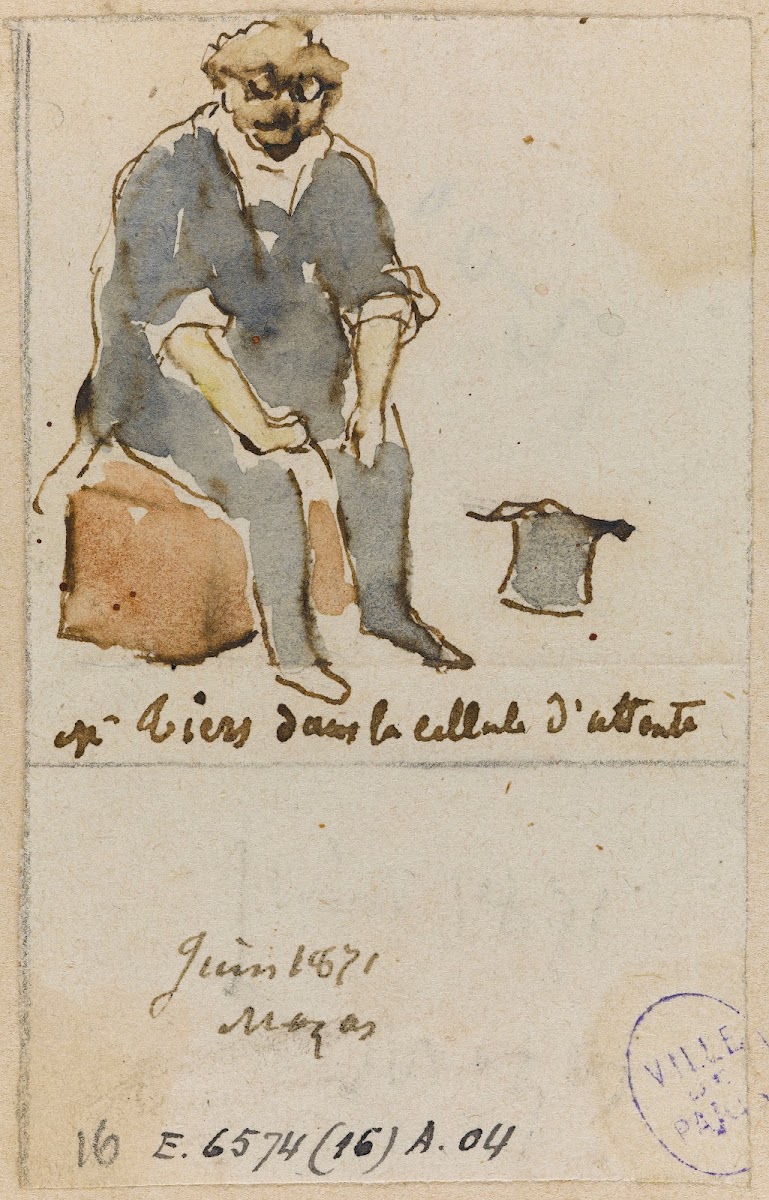 Mr Tiers dans la cellule d'attente
Juin 1871
Mazas
16 E. 6574 (16) A. 04
VILLE
DE
PARIS